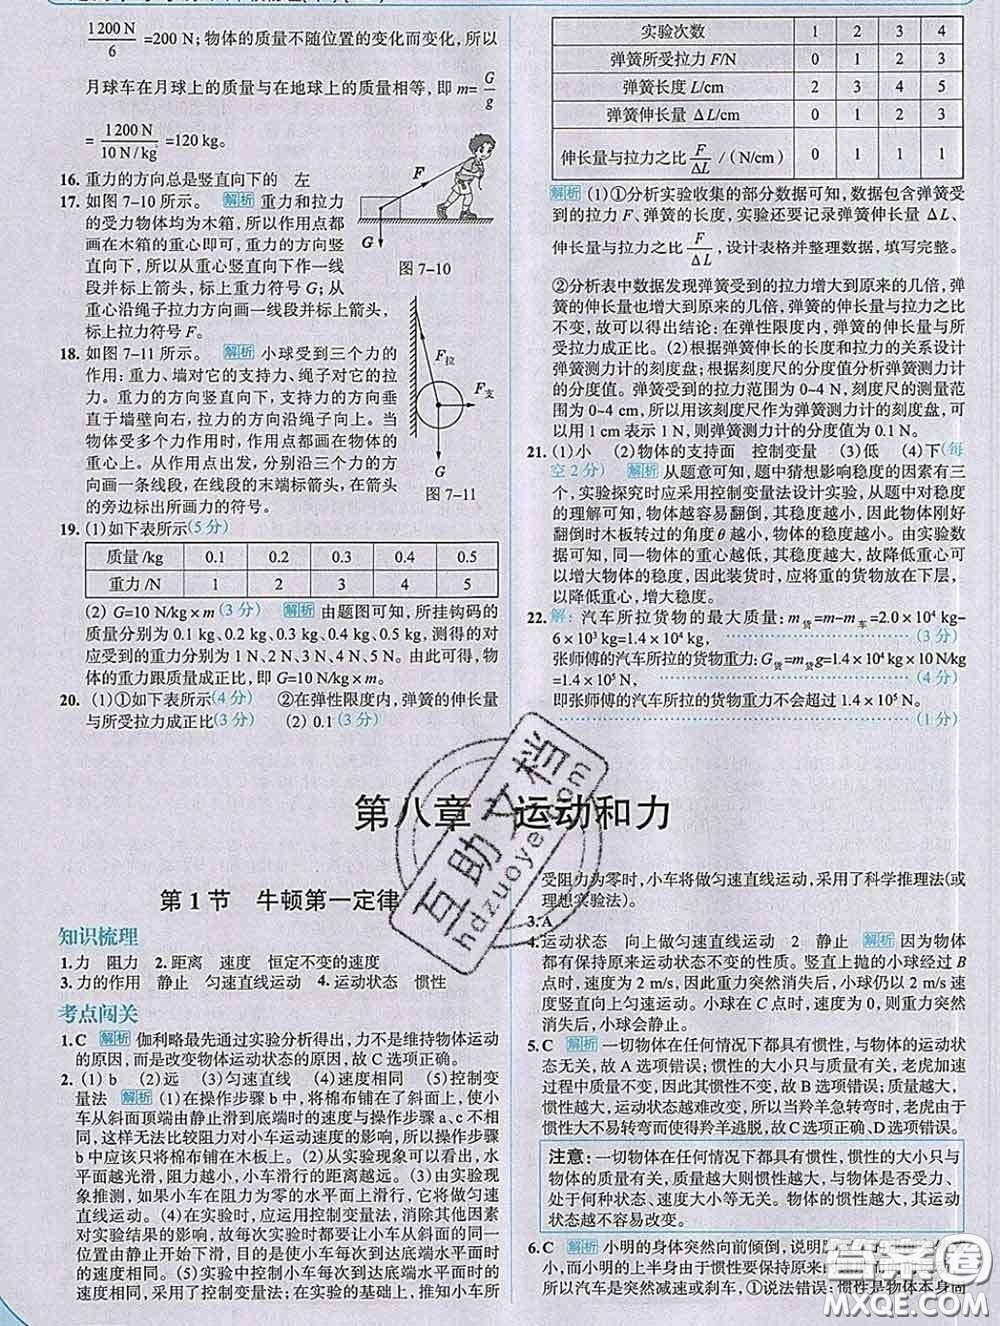 1200 N/6 =200 N;物体的质量不随位置的变化而变化,所以
月球车在月球上的质量与在地球上的质量相等,即 m= G/g
= 1200 N/10 N/kg =120 kg。
16. 重力的方向总是竖直向下的 左
17. 如图 7-10 所示。 解析 重力和拉力
的受力物体均为木箱,所以作用点都
画在木箱的重心即可,重力的方向竖
直向下,所以从重心竖直向下作一线
段并标上箭头,标上重力符号 G;从
重心沿绳子拉力方向画一线段并标上箭头,
标上拉力符号 F。
F
G
图 7-10
18. 如图 7-11 所示。 解析 小球受到三个力的
作用:重力、墙对它的支持力、绳子对它的拉
力。重力的方向竖直向下,支持力的方向垂
直于墙壁向右,拉力的方向沿绳子向上。当
物体受多个力作用时,作用点都画在物体的
重心上。从作用点出发,分别沿三个力的方
向画一条线段,在线段的末端标箭头,在箭头
的旁边标出所画力的符号。
F拉
F支
G
图 7-11
19. (1)如下表所示(5 分)
质量 /kg 0.1 0.2 0.3 0.4 0.5
重力 /N 1 2 3 4 5
(2) G=10 N/kg×m (3 分) 解析 由题图可知,所挂钩码的
质量分别为 0.1 kg、0.2 kg、0.3 kg、0.4 kg、0.5 kg,测得的对
应受到的重力分别为 1 N、2 N、3 N、4 N、5 N。由此可得,物
体的重力跟质量成正比,即 G=10 N/kg×m。
20. (1)①如下表所示(4 分) ②在弹性限度内,弹簧的伸长量
与所受拉力成正比(3 分) (2) 0.1 (3 分)
实验次数 1 2 3 4
弹簧所受拉力 F/N 0 1 2 3
弹簧长度 L/cm 2 3 4 5
弹簧伸长量 ΔL/cm 0 1 2 3
伸长量与拉力之比 F/ΔL /(N/cm) 0 1 1 1
解析 (1)①分析实验收集的部分数据可知,数据包含弹簧受
到的拉力 F、弹簧的长度,实验还要记录弹簧伸长量 ΔL、
伸长量与拉力之比 F/ΔL,设计表格并整理数据,填写完整。
②分析表中数据发现弹簧受到的拉力增大到原来的几倍,弹
簧的伸长量也增大到原来的几倍,弹簧的伸长量与拉力之比
不变,故可以得出结论:在弹性限度内,弹簧的伸长量与所
受拉力成正比。(2)根据弹簧伸长的长度和拉力的关系设计
弹簧测力计的刻度盘;根据刻度尺的分度值分析弹簧测力计
的分度值。弹簧受到的拉力范围为 0~4 N,刻度尺的测量范
围为 0~4 cm,所以用该刻度尺作为弹簧测力计的刻度盘,可
以用 1 cm 表示 1 N,则弹簧测力计的分度值为 0.1 N。
21. (1)小 (2)物体的支持面 控制变量 (3)低 (4)下(每
空 2 分) 解析 从题意可知,题中猜想影响稳度的因素有三
个,实验探究时应采用控制变量法设计实验,从题中对稳度
的理解可知,物体越容易翻倒,其稳度越小,因此物体刚好
翻倒时木板转过的角度 θ 越小,物体的稳度越小。由实验数
据可知,同一物体的重心越低,其稳度越大,故降低重心可
以增大物体的稳度,因此装货时,应将重的货物放在下层,
以降低重心,增大稳度。
22. 解:汽车所拉货物的最大质量:m货=m-m车=2.0×10⁴ kg-
6×10³ kg=1.4×10⁴ kg, (3 分)
张师傅的汽车所拉的货物重力:G货=m货g=1.4×10⁴ kg×10 N/kg
=1.4×10⁵ N, (4 分)
即张师傅的汽车所拉的货物重力不会超过 1.4×10⁵ N。
(1 分)
第八章 运动和力
第 1 节 牛顿第一定律
知识梳理
1. 力 阻力 2. 距离 速度 恒定不变的速度
3. 力的作用 静止 匀速直线运动 4. 运动状态 惯性
考点闯关
1. C 解析 伽利略最先通过实验分析得出,力不是维持物体运动
的原因,而是改变物体运动状态的原因,故 C 选项正确。
2. (1) b (2)远 (3)匀速直线 (4)速度相同 (5)控制变
量法 解析 (1)在操作步骤 b 中,将棉布铺在了斜面上,使
小车从斜面顶端由静止滑到底端时的速度与操作步骤 a、c 不相
同,这样无法比较阻力对小车运动速度的影响,所以操作步骤
b 中应该只将棉布铺在木板上。(2)从实验现象可以看出,水
平面越光滑,阻力越小,小车滑行的距离越远。(3)由实验现
象推测,如果小车在阻力为零的水平面上滑行,它将做匀速
直线运动。(4)在实验时,应运用控制变量法,消除其他因素
对实验结果的影响,故每次实验时都要让小车从斜面的同一
位置由静止开始下滑,目的是使小车每次到达底端水平面时
的速度相同。(5)实验中控制小车每次到达底端水平面时的
速度相同,采用了控制变量法;在实验的基础上,推知小车所
受阻力为零时,小车将做匀速直线运动,采用了科学推理法(或
理想实验法)。
3. A
4. 运动状态 向上做匀速直线运动 2 静止 解析 因为物体
都有保持原来运动状态不变的性质。竖直上抛的小球经过 B
点时,速度为 2 m/s,因此重力突然消失后,小球仍以 2 m/s 速
度竖直向上匀速运动。小球在 C 点时,速度为 0,则重力突然
消失后,小球会静止。
5. C 解析 一切物体在任何情况下都具有惯性,与物体的运动状
态无关,故 A 选项错误;惯性的大小只与质量有关,老虎加速
过程中质量不变,因此惯性不变,故 B 选项错误;质量越大,
惯性越大,运动状态越难改变,所以当羚羊急转弯时,老虎由于
惯性大不易转弯而使得羚羊逃脱,故 C 选项正确、D 选项错误。
注意:一切物体在任何情况下都具有惯性,惯性的大小只与
物体的质量有关,质量越大则惯性越大,与物体是否受力、
处于何种状态、速度大小等无关。物体的惯性越大,其运动
状态越不容易改变。
6. C 解析 小明的身体突然向前倾倒,说明
小,而小明的上半身由于惯性要保持原来的
所以汽车是突然减速或刹车,①说法错误;惯性是物体本身固
互助文档
hdzuoye.com
答案圈
MXQE.COM